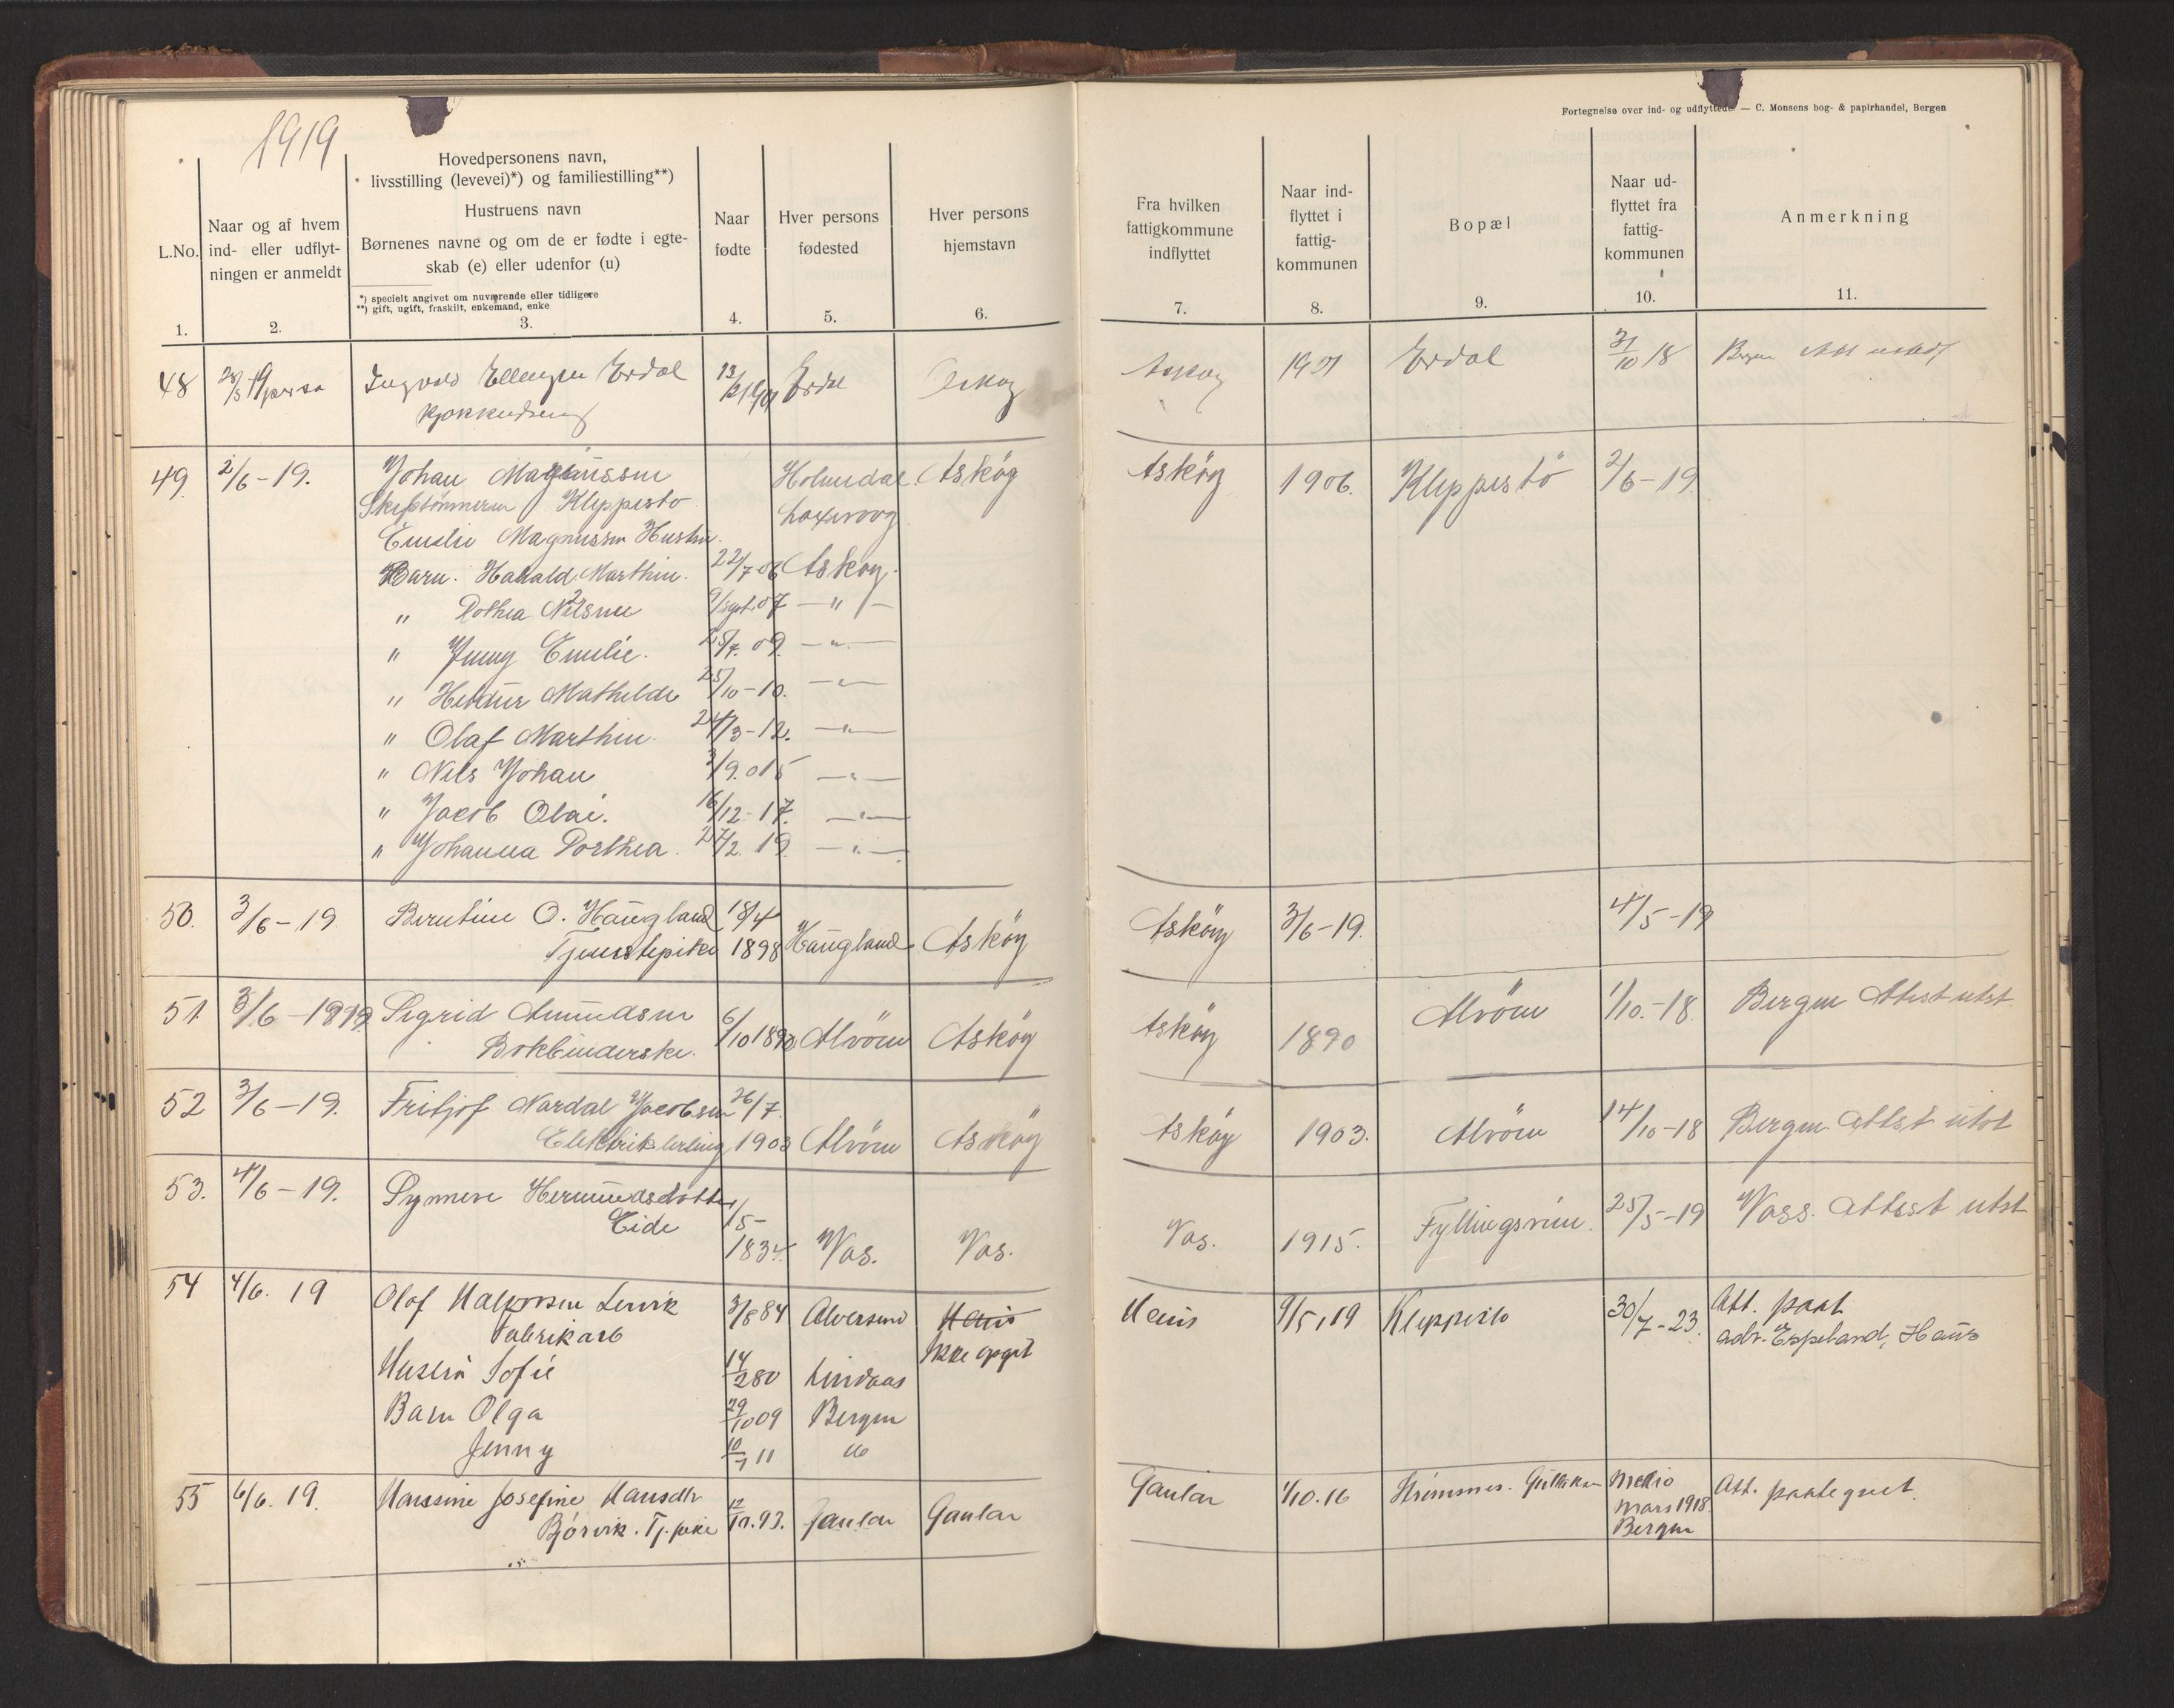 1919
Fortegnelse over ind- og udflyttede. — C. Monsens bog- & papirhandel, Bergen
L.No.
1.
Naar og af hvem
ind- eller udflyt-
ningen er anmeldt
2.
Hovedpersonens navn,
livsstilling (levevei)*) og familiestilling**)
Hustruens navn
Børnenes navne og om de er fødte i egte-
skab (e) eller udenfor (u)
*) specielt angivet om nuværende eller tidligere
**) gift, ugift, fraskilt, enkemand, enke
3.
Naar
fødte
4.
Hver persons
fødested
5.
Hver persons
hjemstavn
6.
Fra hvilken
fattigkommune
indflyttet
7.
Naar ind-
flyttet i
fattig-
kommunen
8.
Bopæl
9.
Naar ud-
flyttet fra
fattig-
kommunen
10.
Anmerkning
11.
48 Ingvald Ellingsen Erdal Erdal Askøy Askøy Erdal 31/10 18 Bergen
49. 2/6-19. Johan Magnussen Holmedal. Askøy Askøy 1906. Kleppestö 2/6-19.
Skibstømmerm Kleppestö
Emelie Magnussen Hustru.
Barn. Harald Marthin. 22/7 06 Askøy.
" Dothea Nilsine 9/sept. 07 — " —
" Jenny Emelie. 25/4. 09. — " —
" Mathilde 25/10-10. — " —
" Olaf Marthin. 24/3-12. — " —
" Nils Johan 3/9. 015 — " —
" Jacob Olai. 16/12-17. — " —
" Johanna Dorthea. 27/2. 19. — " —
50. 3/6-19. Berntine O. Haugland 18/4 Askøy 3/6-19. 4/5-19
Tjenestepike 1898 Haugland. Askøy
51. 3/6-1919. Sigrid Amundsen 6/10 1890 Alvøen Askøy Askøy 1890 Alvøen 1/10.-18. Bergen Attest utst.
Bokbinderske.
52 3/6-19. Fritjof Nordal Jacobsen 26/7. Askøy 1903. Alvøen 14/10-18 Bergen. Attest utst
Elektrikerlærling 1903 Alvøen Askøy
53. 4/6-19. Synneve Hermundsdotter 1/5- Vos. 1915. Fyllingsveien. 25/5-19 Voss. Attest utst
Eide 1834 Vos. Vos.
54 4/6. 19 Olaf Halvorsen Lervik 3/8 84 Alversund Haus Haus 9/5.19 Kleppestö 30/7-23. Att. paat
Fabrikarb Ikke opgit adr. Espeland, Haus
Hustru Sofie 14/2 80 Lindaas
Barn Olga 29/10 09 Bergen
Jenny 10/7 11 do
55 6/6. 19. Hansine Josefine Hansdtr Gaular 1/10.16 Medio Att. paategnet.
Bjørvik. Tj. pike 12/10. 93. Gaular Gaular mars 1918.
Bergen